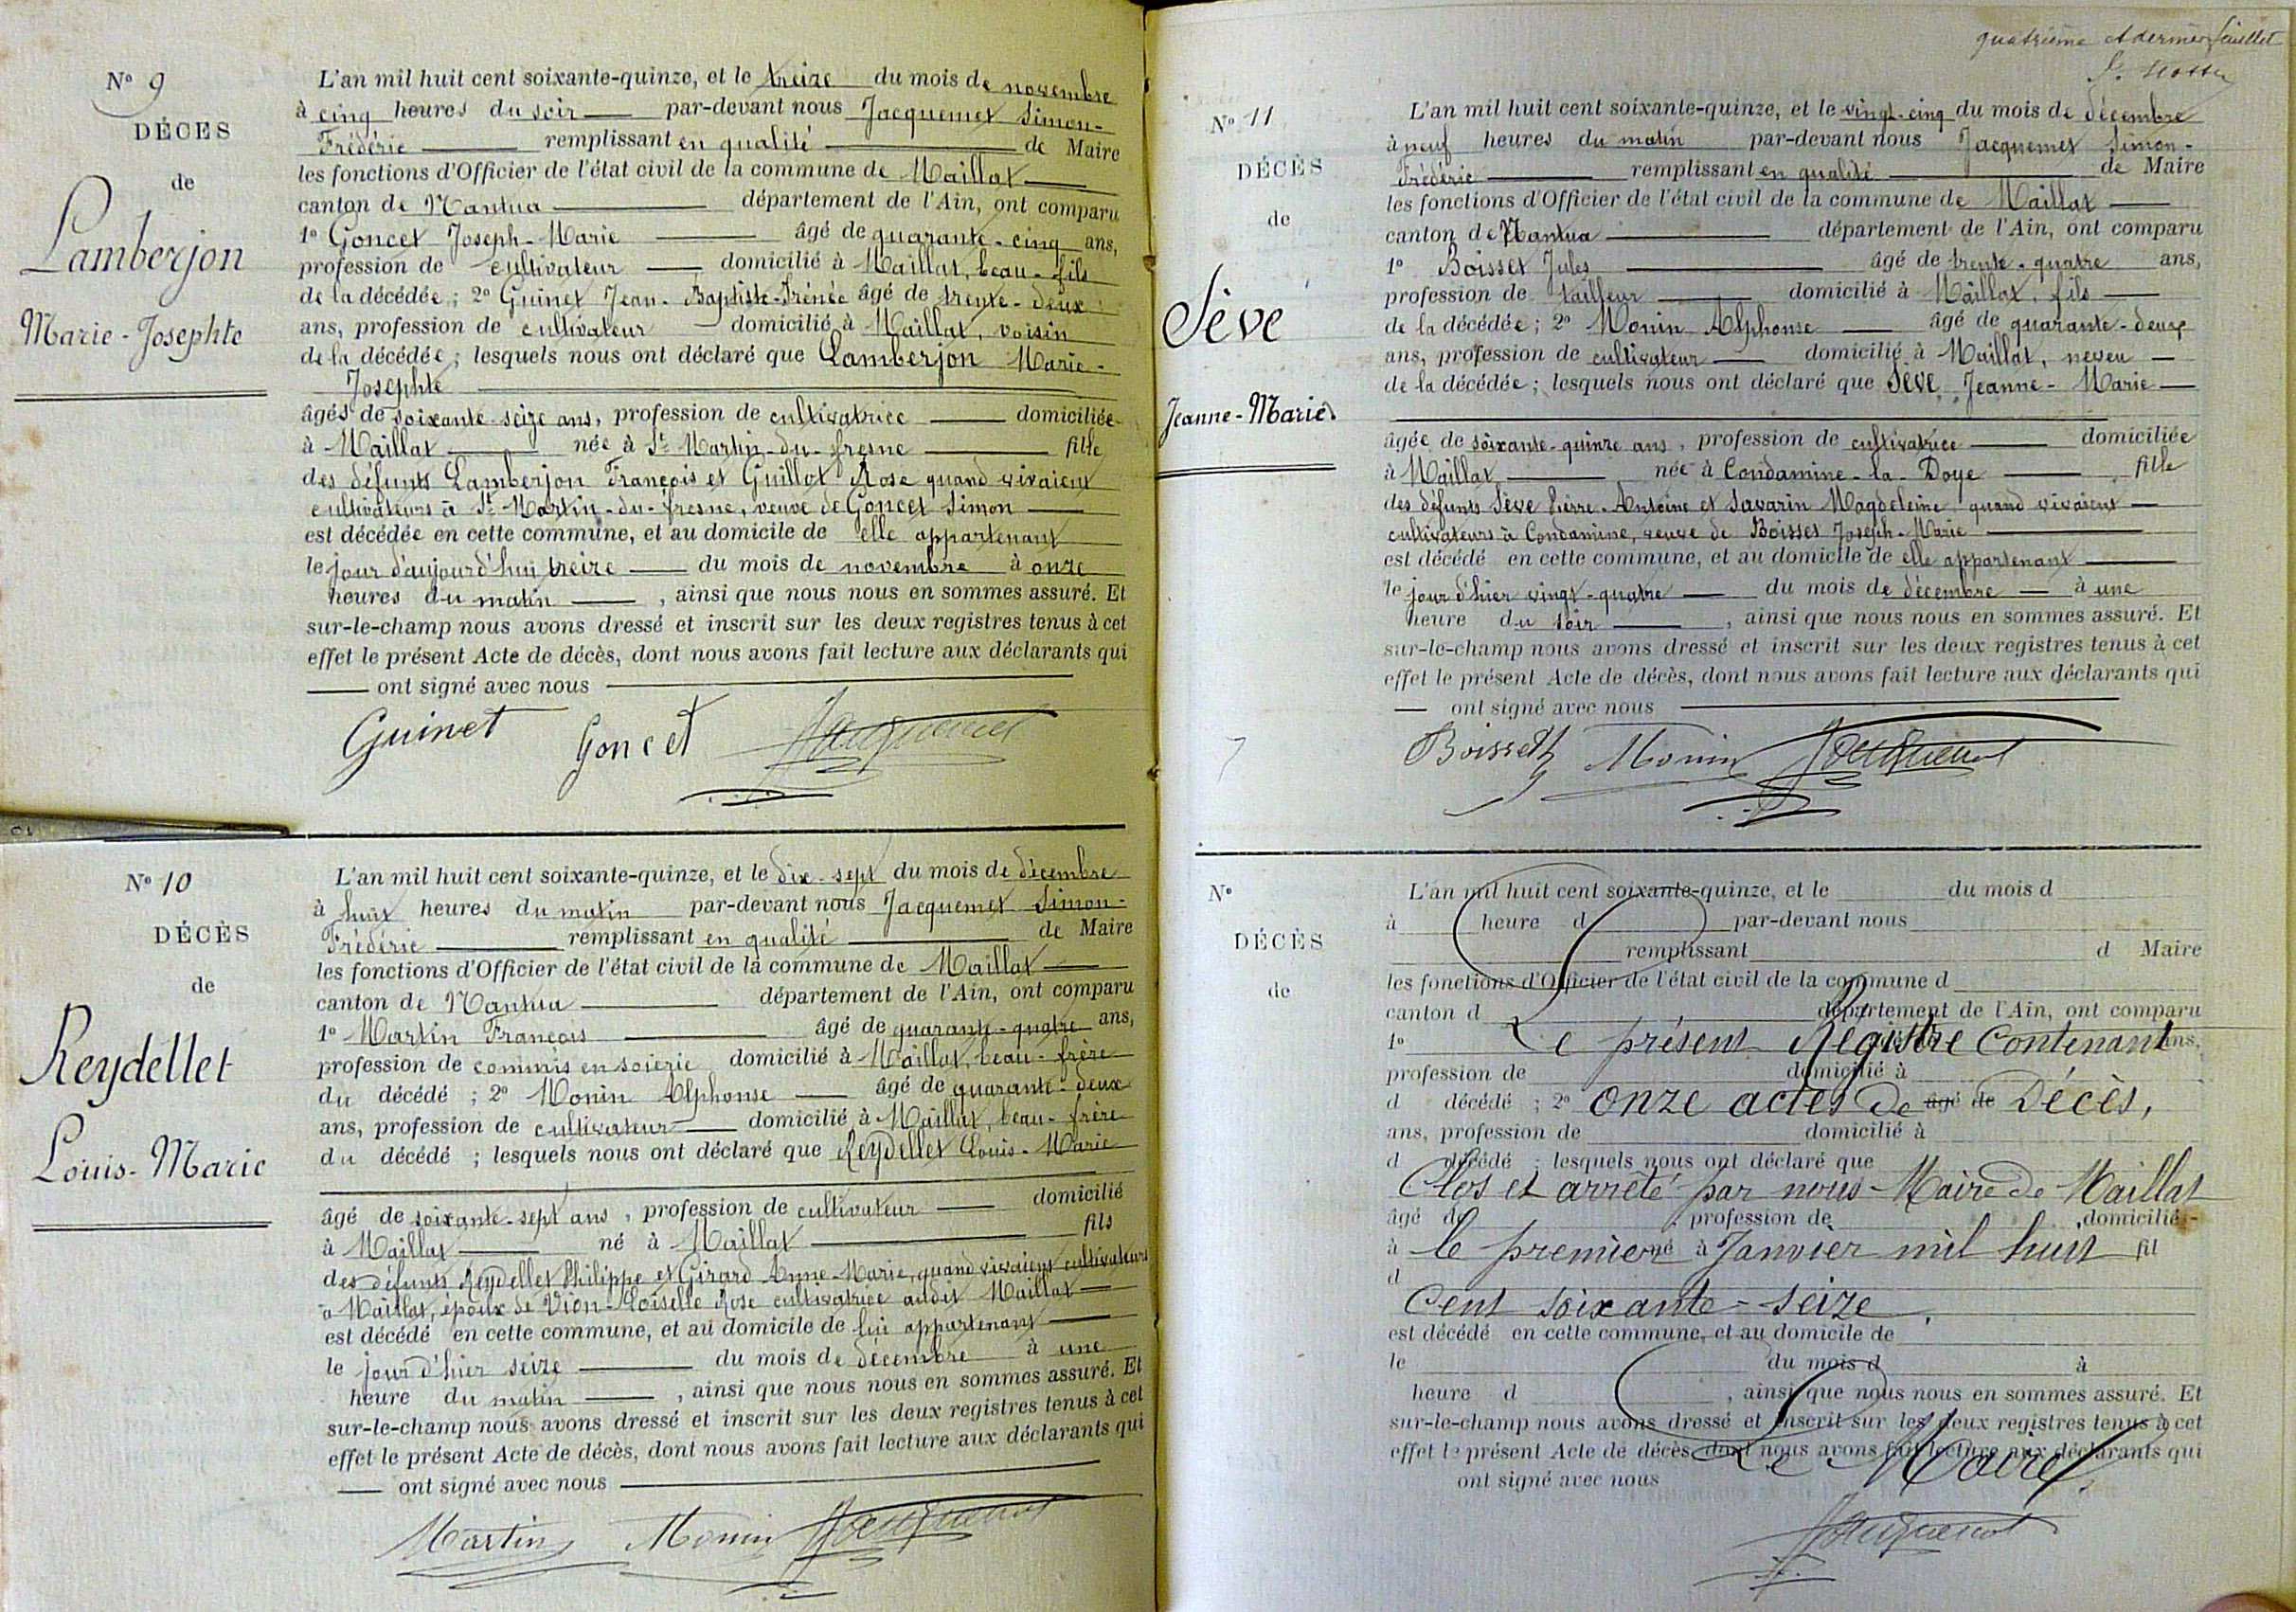 N° 9
DÉCES
de
Lamberjon
Marie-Josephte
L'an mil huit cent soixante-quinze, et le treize du mois de novembre
à cinq heures du soir par-devant nous Jacquemet Simon-
Frédéric remplissant en qualité de Maire
les fonctions d'Officier de l'état civil de la commune de Maillat
canton de Nantua département de l'Ain, ont comparu
1° Goncet Joseph-Marie âgé de quarante-cinq ans,
profession de cultivateur domicilié à Maillat, beau-fils
de la décédée ; 2° Guinet Jean-Baptiste-Irénée âgé de trente-deux
ans, profession de cultivateur domicilié à Maillat, voisin
de la décédée ; lesquels nous ont déclaré que Lamberjon Marie-
Josephte
âgés de soixante-seize ans, profession de cultivatrice domiciliée
à Maillat née à St Martin-du-fresne fille
des défunts Lamberjon François et Guillot Rose quand vivaient
cultivateurs à St-Martin-du-fresne, veuve de Goncet Simon
est décédée en cette commune, et au domicile de elle appartenant
le jour d'aujourd'hui treize du mois de novembre à onze
heures du matin , ainsi que nous nous en sommes assuré. Et
sur-le-champ nous avons dressé et inscrit sur les deux registres tenus à cet
effet le présent Acte de décès, dont nous avons fait lecture aux déclarants qui
ont signé avec nous
Guinet Goncet Jacquemet
N° 10
DÉCÈS
de
Reydellet
Louis-Marie
L'an mil huit cent soixante-quinze, et le dix-sept du mois de décembre
à huit heures du matin par-devant nous Jacquemet Simon-
Frédéric remplissant en qualité de Maire
les fonctions d'Officier de l'état civil de la commune de Maillat
canton de Nantua département de l'Ain, ont comparu
1° Martin François âgé de quarante-quatre ans,
profession de commis en soierie domicilié à Maillat, beau-frère
du décédé ; 2° Monin Alphonse âgé de quarante-deux
ans, profession de cultivateur domicilié à Maillat, beau-frère
du décédé ; lesquels nous ont déclaré que Reydellet Louis-Marie
âgé de soixante-sept ans, profession de cultivateur domicilié
à Maillat né à Maillat fils
des défunts Reydellet Philippe et Girard Anne-Marie, quand vivaient cultivateurs
à Maillat, époux de Vion-Loiselle Rose cultivatrice audit Maillat
est décédé en cette commune, et au domicile de lui appartenant
le jour d'hier seize du mois de décembre à une
heure du matin , ainsi que nous nous en sommes assuré. Et
sur-le-champ nous avons dressé et inscrit sur les deux registres tenus à cet
effet le présent Acte de décès, dont nous avons fait lecture aux déclarants qui
ont signé avec nous
Martin Monin Jacquemet
quatrième et dernier feuillet
N° 11
DÉCÈS
de
Sève
Jeanne-Marie
L'an mil huit cent soixante-quinze, et le vingt-cinq du mois de décembre
à neuf heures du matin par-devant nous Jacquemet Simon-
Frédéric remplissant en qualité de Maire
les fonctions d'Officier de l'état civil de la commune de Maillat
canton de Nantua département de l'Ain, ont comparu
1° Boisset Jules âgé de trente-quatre ans,
profession de tailleur domicilié à Maillat, fils
de la décédée ; 2° Monin Alphonse âgé de quarante-deux
ans, profession de cultivateur domicilié à Maillat, neveu
de la décédée ; lesquels nous ont déclaré que Sève Jeanne-Marie
âgée de soixante-quinze ans, profession de cultivatrice domiciliée
à Maillat née à Condamine-la-Doye fille
des défunts Sève Pierre-Antoine et Savarin Magdeleine quand vivaient
cultivateurs à Condamine, veuve de Boisset Joseph-Marie
est décédé en cette commune, et au domicile de elle appartenant
le jour d'hier vingt-quatre du mois de décembre à une
heure du soir , ainsi que nous nous en sommes assuré. Et
sur-le-champ nous avons dressé et inscrit sur les deux registres tenus à cet
effet le présent Acte de décès, dont nous avons fait lecture aux déclarants qui
ont signé avec nous
Boisset Monin Jacquemet
N°
DÉCÈS
de
L'an mil huit cent soixante-quinze, et le du mois d
à heure d par-devant nous
remplissant d Maire
les fonctions d'Officier de l'état civil de la commune d
canton d département de l'Ain, ont comparu
1° ans,
Le présent Registre Contenant
profession de domicilié à
d décédé ; 2° âgé de
onze actes de Décès,
ans, profession de domicilié à
d décédé ; lesquels nous ont déclaré que
Clos et arrêté par nous Maire de Maillat
âgé de , profession de , domicilié
à né à fil
le premier Janvier mil huit
d
Cent soixante-seize.
est décédé en cette commune, et au domicile de
le du mois d à
heure d , ainsi que nous nous en sommes assuré. Et
sur-le-champ nous avons dressé et inscrit sur les deux registres tenus à cet
effet le présent Acte de décès, dont nous avons fait lecture aux déclarants qui
Le Maire,
ont signé avec nous
Jacquemet